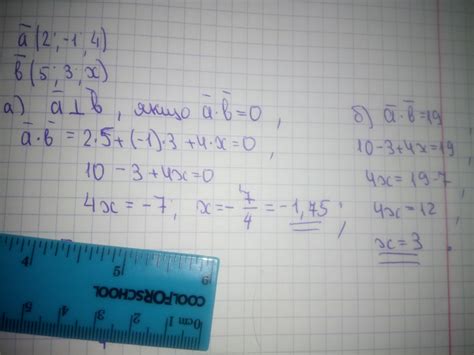 ā (2; -1; 4)
b̄ (5; 3; x)
а) ā ⊥ b̄, якщо ā·b̄ = 0,
ā·b̄ = 2·5+(-1)·3+4·x=0,
10 - 3 + 4x = 0
4x = -7; x = -7/4 = -1,75;
б) ā·b̄ = 19
10 - 3 + 4x = 19,
4x = 19 - 7,
4x = 12,
x = 3.
4 5 6
COOLFORSCHOOL
0cm 1